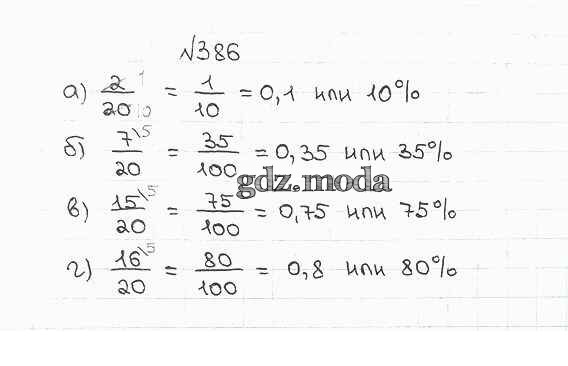 №386
а) 2/20 1 10 = 1/10 = 0,1 или 10%
б) 7\5/20 = 35/100 = 0,35 или 35%
gdz.moda
в) 15\5/20 = 75/100 = 0,75 или 75%
г) 16\5/20 = 80/100 = 0,8 или 80%